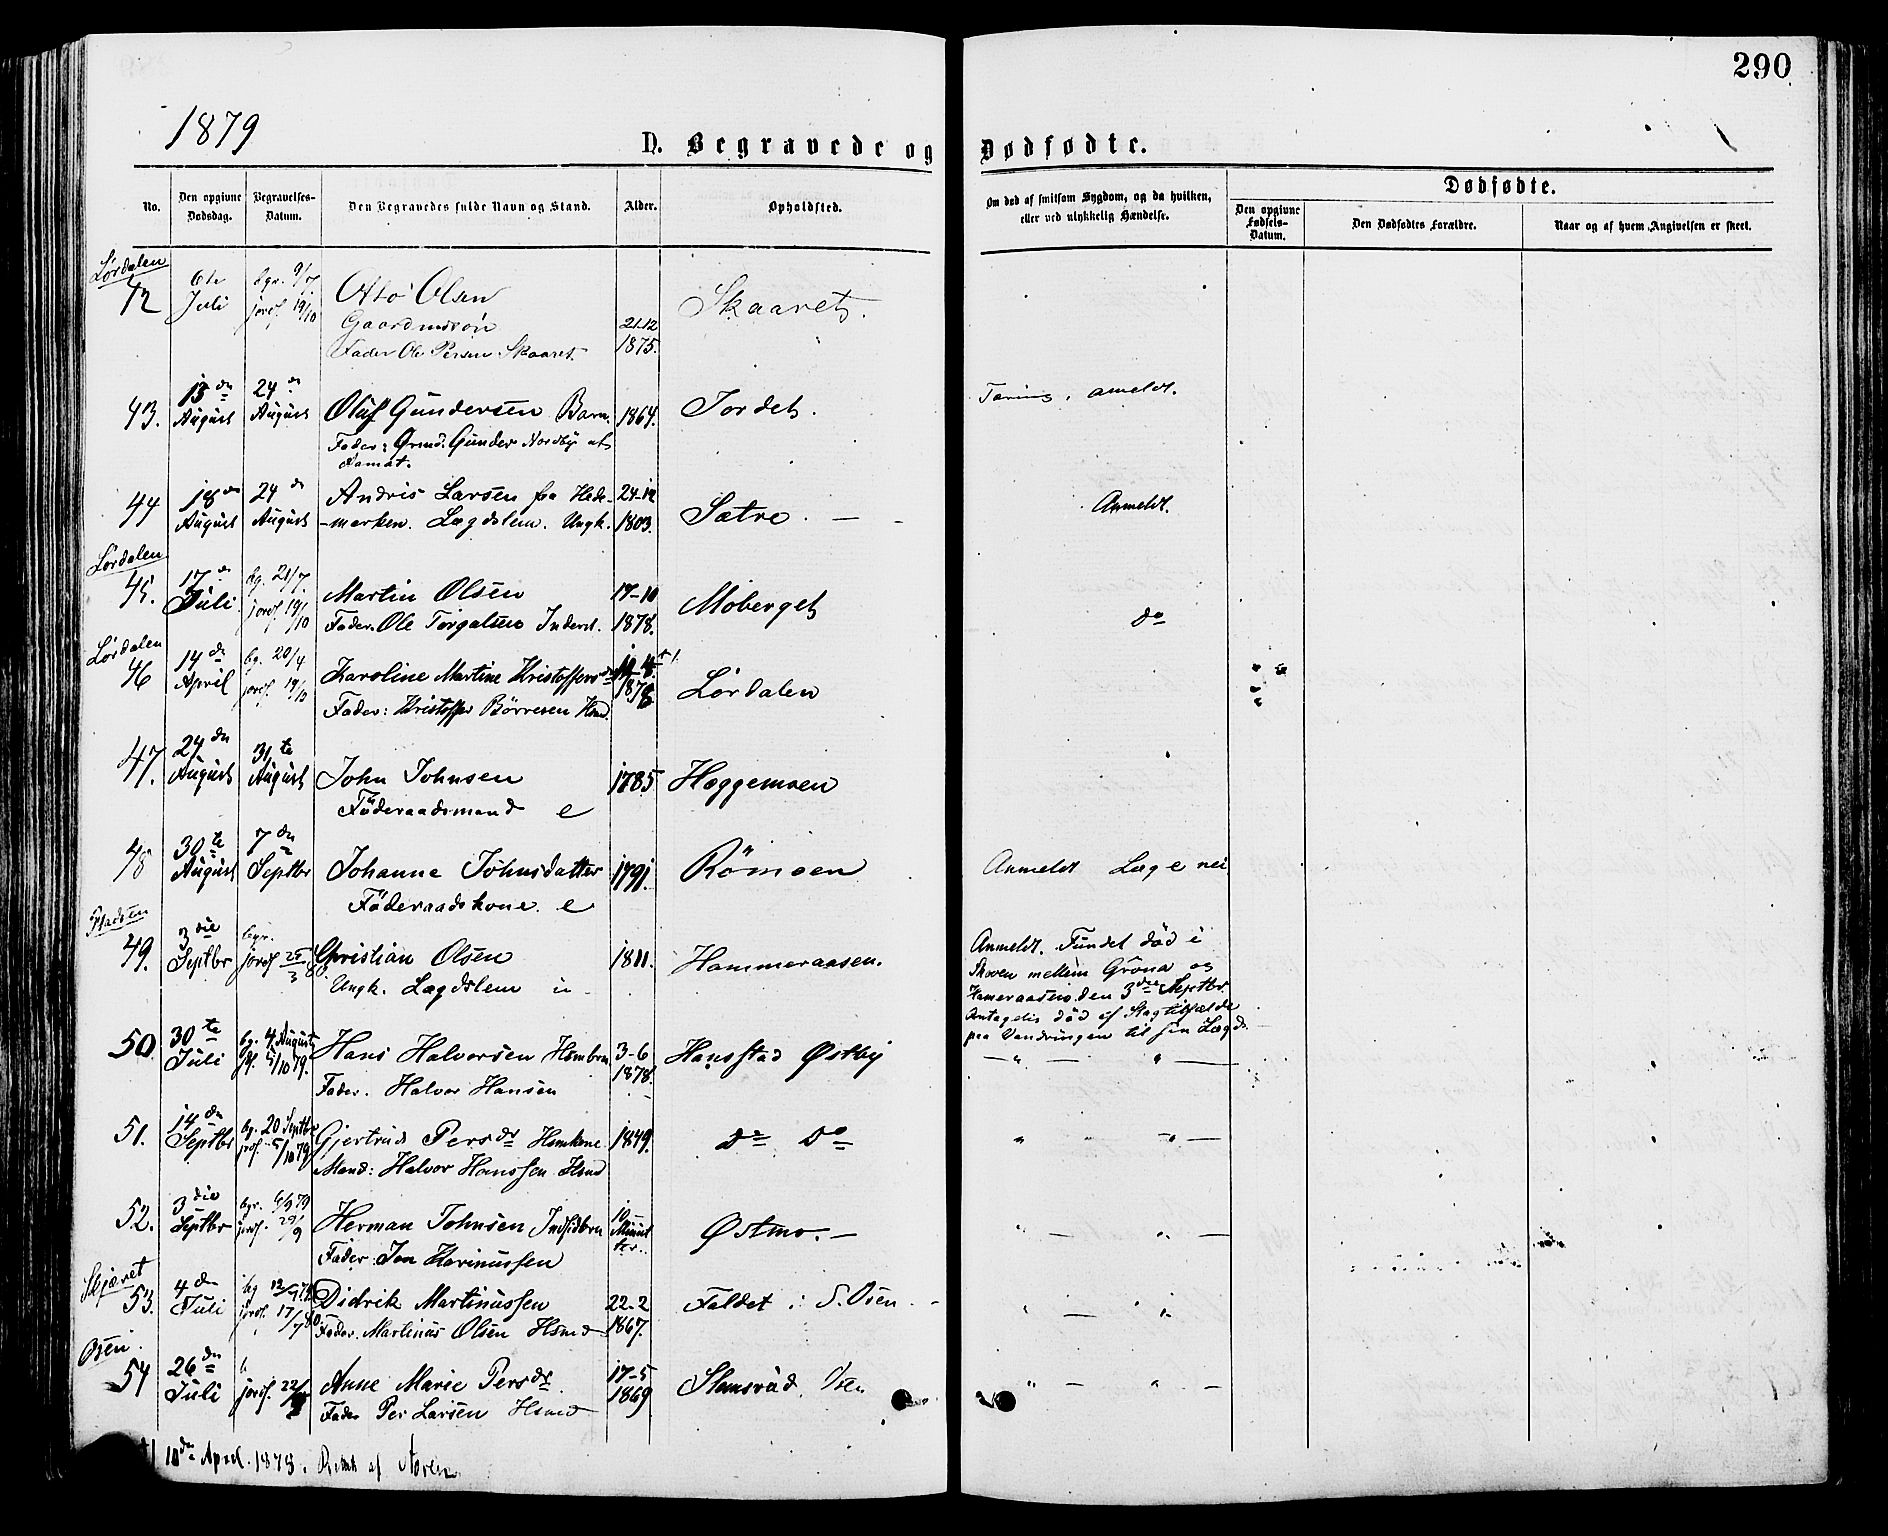 290
1879
D. Begravede og Dødfødte.
No.
Den opgivne Dødsdag.
Begravelses-Datum.
Den Begravedes fulde Navn og Stand.
Alder.
Opholdsted.
Om død af smitsom Sygdom, og da hvilken, eller ved ulykkelig Hændelse.
Dødfødte.
Den opgivne Fødsels-Datum.
Den Dødfødtes Forældre.
Naar og af hvem Angivelsen er skeet.
Lørdalen
42 6te Juli bgr. 9/7 jordf. 19/10 Otto Olsen 21-12 1875. Skaaret.
Gaardmssøn
Fader Ole Persen Skaaret.
43. 13de August 24de August Oluf Gundersen Barn. 1864. Jordet. Tæring, anmeldt.
Fader: Grmd. Gunder Nordby af
44 18de August 24de August Andris Larsen fra Hede- 24-12 1803. Sætre. Anmeldt.
-marken. Lægdslem. Ungk.
Lørdalen
45. 17de Juli bg. 21/7 jordf. 19/10 Martin Olsen 17-10 1878. Moberget do
Fader. Ole Torgalsen Inderst.
Lørdalen
46 14de April bg. 20/4 jordf. 19/10 Karoline Martine Kristoffersdr 1878 Lørdalen
Fader: Kristoffer Börresen Hsmd.
47. 24de August 31te August John Johnsen 1785 Hæggemoen
Föderaadsmand e
48 30te August 7de Septbr Johanne Johnsdatter 1791. Römoen Anmeldt Læge nei
Föderaadskone. e
Pladsen
49. 3die Septbr begr. jordf Christian Olsen 1811. Hammeraasen.
Ungk. Lægdslem u
Anmeldt. Fundet död i
Skoven mellem Gröna og
den 3die Septbr.
Antagelig död af Slagtilfælde
paa Vandringen til sin Lægd.
50. 30te Juli bg. 4. August jf. 5/10 79. Hans Halvorsen Hsmbrn 3-6 1878. Hansstad Østby — " — " —
Fader. Halvor Hansen
51. 14de Septbr bg. 20 Septbr jrdf. 5/10 79 Gjertrud Persdr Hsmkone 1849. do do " " —
Mand: Halvor Hanssen Hsmd
52. 3die Septbr bgr. 6/9 79 jordf. 29/9 Herman Johnsen Indsidbrn 10 Minutter. Østmo. — " — " —
Fader: Jon Karinussen
Skjæret
53. 4de Juli bg jordf. 17/7 80 Didrik Martinussen 22-2 1867. Faldet i S. Osen. " — " —
Fader. Martinus Olsen Hsmd
Osen.
54 26de Juli jordf. Anne Marie Persdr. 17-5 1869 Slemsråd, Osen " — " —
Fader Per Larsen Hsmd
10de April. 1878.